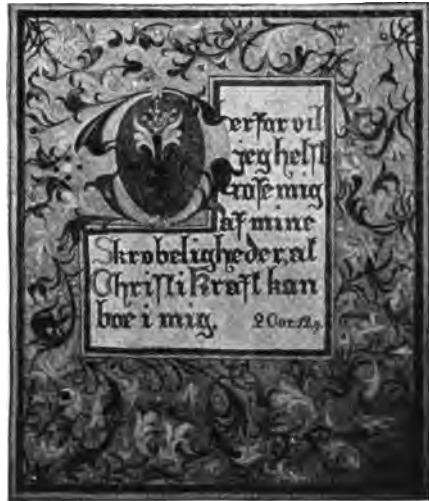 Derfor vil
jeg helst
rose mig
af mine
Skrobeligheder, at
Christi Kraft kan
boe i mig. 2 Cor. 12, 9.